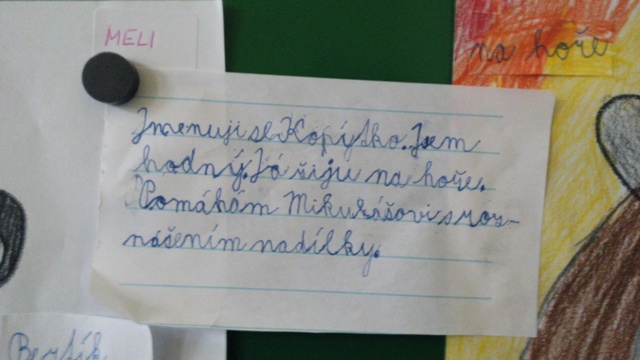 MELI
na hoře
Jmenuji se Kopýtko. Jsem
hodný. Já žiju na hoře.
Pomáhám Mikulášovi s roz-
nášením nadílky.
Bertík